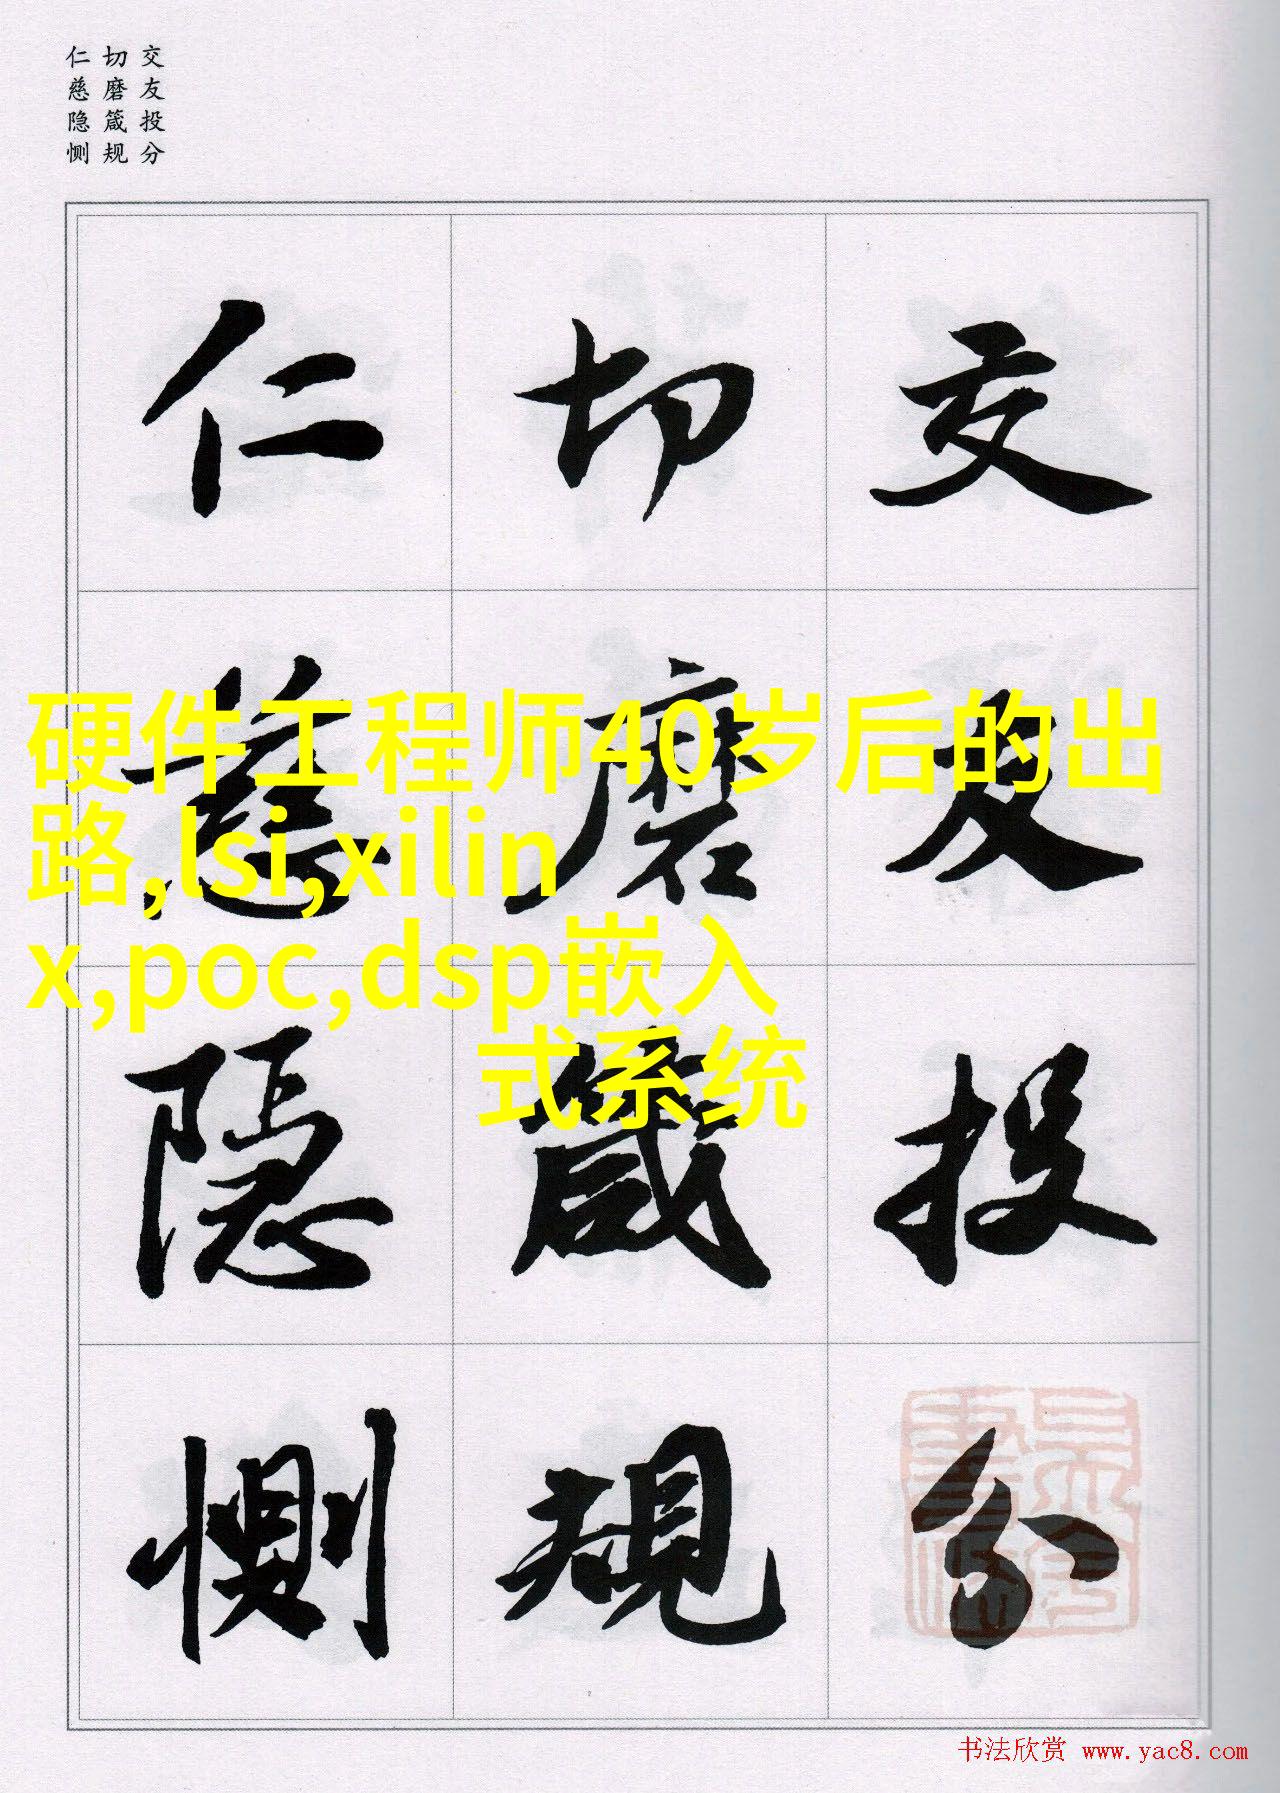 交友投分
切磨箴规
仁慈隐恻
交友投分
切磨箴规
仁慈隐恻
硬件工程师40岁后的出
路,lsi,xilin
x,poc,dsp嵌入
式系统
书法欣赏 www.yac8.com